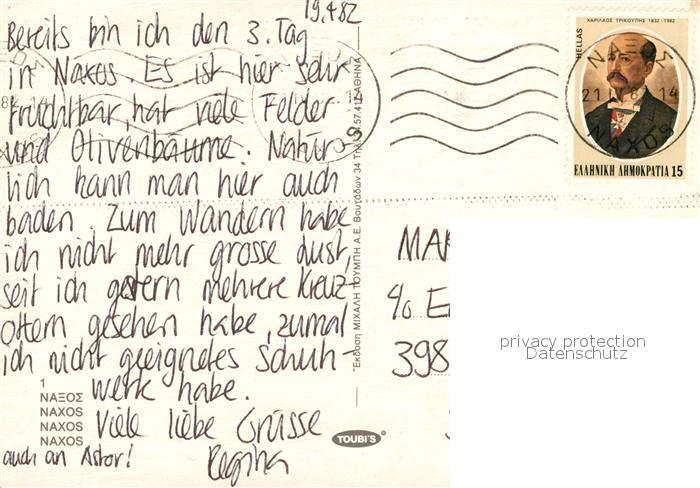 19.4.82
Bereits bin ich den 3. Tag
in Naxos. Es ist hier sehr
fruchtbar, hat viele Felder
und Olivenbäume. Natür-
lich kann man hier auch
baden. Zum Wandern habe
ich nicht mehr grosse Lust,
seit ich gestern mehrere Kreuz-
ottern gesehen habe, zumal
ich nicht geeignetes Schuh-
werk habe.
Viele liebe Grüsse
Regina
auch an Astor!
1
ΝΑΞΟΣ
NAXOS
NAXOS
NAXOS
Έκδοση ΜΙΧΑΛΗ ΤΟΥΜΠΗ Α.Ε. Βουτάδων 34 ΑΘΗΝΑ
TOUBI'S
ΧΑΡΙΛΑΟΣ ΤΡΙΚΟΥΠΗΣ 1832-1982
HELLAS
ΕΛΛΗΝΙΚΗ ΔΗΜΟΚΡΑΤΙΑ 15
ΝΑΞΟΣ
21 IV 8 14
NAXOS
MAR
c/o E
398
privacy protection
Datenschutz